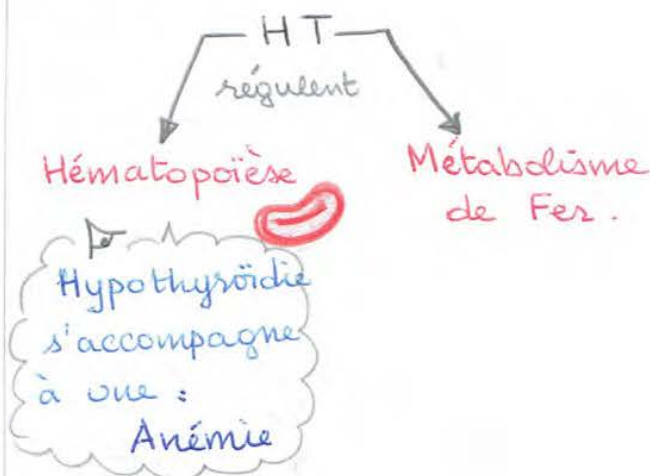 HT
régulent
Hématopoïèse
Métabolisme
de Fer.
Hypothyroïdie
s'accompagne
à une :
Anémie